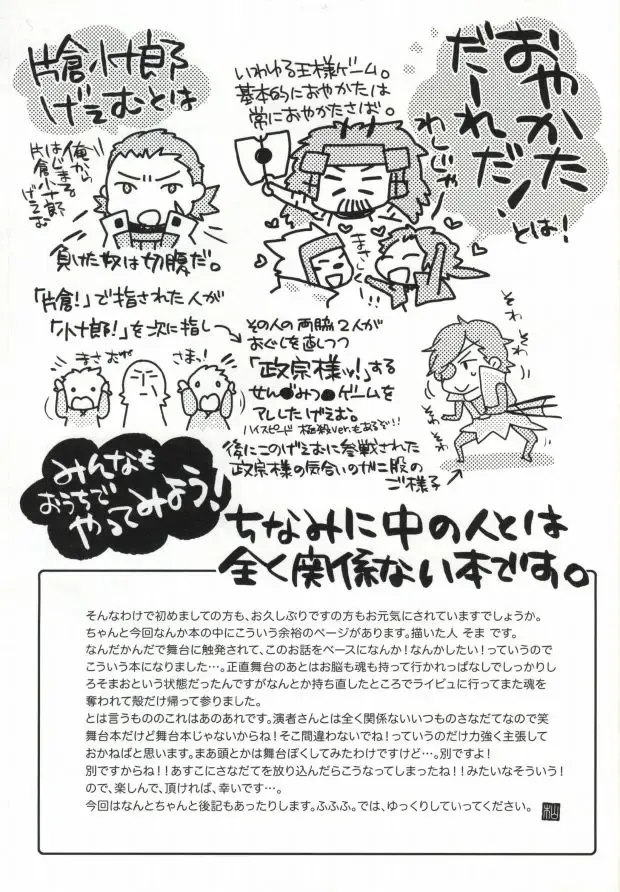 おやかた
だーれだ!
とは!
いわゆる王様ゲーム。
基本的におやかたは
常におやかたさば。
わしじゃー
まさむくん!!
片倉小十郎
げえむとは
俺から
はじまる
片倉小十郎
げえむ
負けた奴は切腹だ。
「片倉!」で指された人が
「小十郎!」を次に指し
その人の両脇2人が
おぐしを直しつつ
「政宗様ッ!」する
せん●みつ●ゲームを
アレしたげえむ。
ハイスピード 極殺ver.もあるぞ!!
まさむね
さまっ!
そわ
そわ
そわ
そわ
後にこのげえむに参戦された
政宗様の気合いのガニ股の
ご様子
みんなも
おうちで
やってみよう!
ちなみに中の人とは
全く関係ない本です。
そんなわけで初めましての方も、お久しぶりですの方もお元気にされていますでしょうか。
ちゃんと今回なんか本の中にこういう余裕のページがあります。描いた人 そま です。
なんだかんだで舞台に触発されて、このお話をベースになんか!なんかしたい!っていうので
こういう本になりました…。正直舞台のあとはお脳も魂も持って行かれっぱなしでしっかりし
ろそまおという状態だったんですがなんとか持ち直したところでライビュに行ってまた魂を
奪われて殻だけ帰って参りました。
とは言うもののこれはあのあれです。演者さんとは全く関係ないいつものさなだてなので笑
舞台本だけど舞台本じゃないからね!そこ間違わないでね!っていうのだけ力強く主張して
おかねばと思います。まあ頭とかは舞台ぽくしてみたわけですけど…。別ですよ!
別ですからね!!あすこにさなだてを放り込んだらこうなってしまったね!!みたいなそういう!
ので、楽しんで、頂ければ、幸いです…。
今回はなんとちゃんと後記もあったりします。ふふふ。では、ゆっくりしていってください。